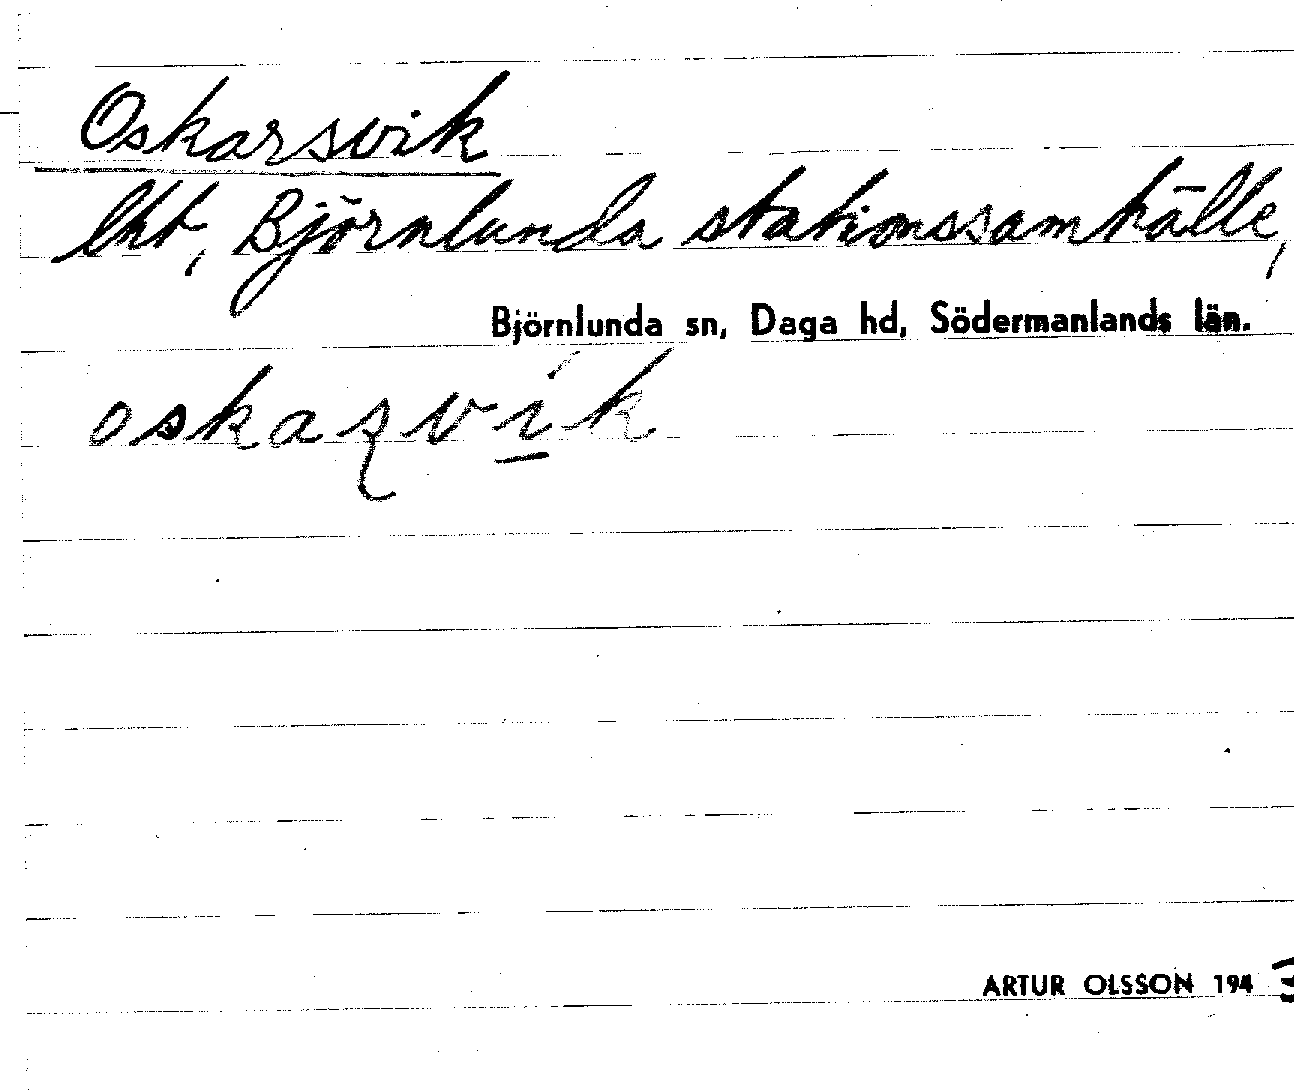 Oskarsvik
lht, Björnlunda stationssamhälle,
Björnlunda sn, Daga hd, Södermanlands län.
oskaʂvík
ARTUR OLSSON 194